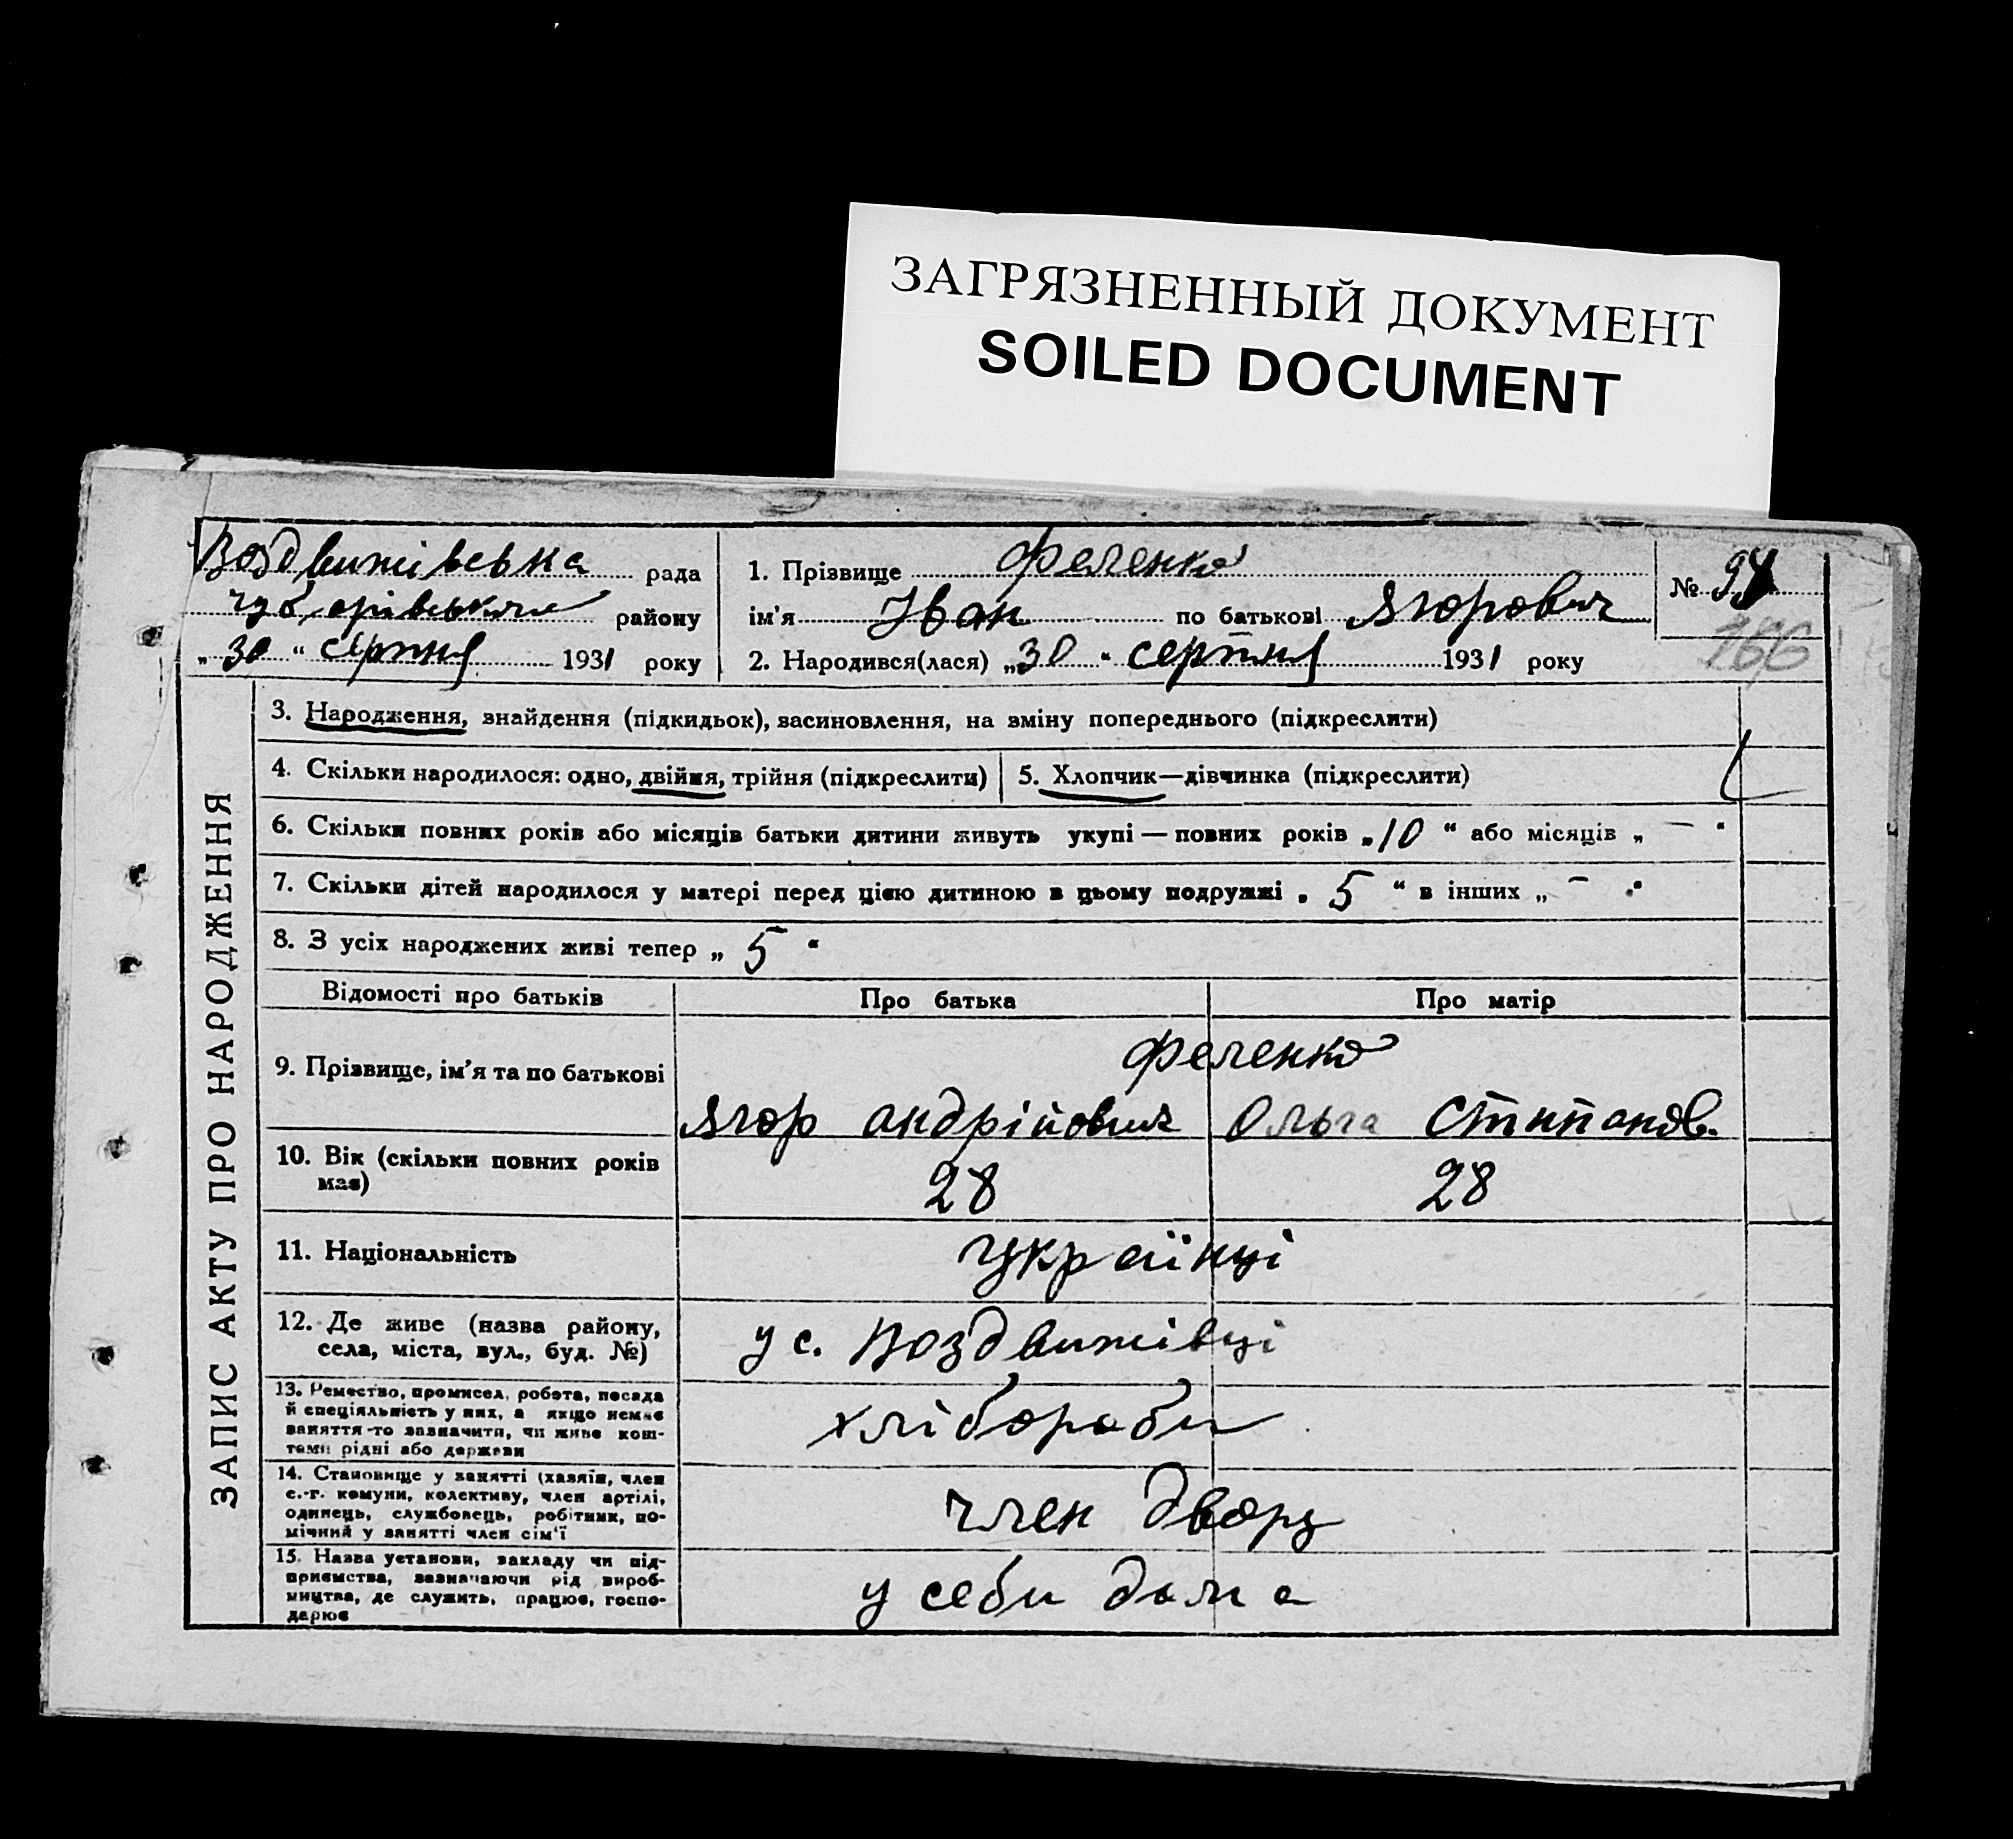 ЗАГРЯЗНЕННЫЙ ДОКУМЕНТ
SOILED DOCUMENT
Воздвижівська рада
району
„30“ серпня 1931 року
1. Прізвище Феленко
ім'я Іван по батькові Ягорович
2. Народився(лася) „30“ серпня 1931 року
№
166
ЗАПИС АКТУ ПРО НАРОДЖЕННЯ
3. Народження, знайдення (підкидьок), засиновлення, на зміну попереднього (підкреслити)
4. Скільки народилося: одно, двійня, трійня (підкреслити)
5. Хлопчик—дівчинка (підкреслити)
6. Скільки повних років або місяців батьки дитини живуть укупі — повних років „10“ або місяців „—“
7. Скільки дітей народилося у матері перед цією дитиною в цьому подружжі „5“ в інших „—“
8. З усіх народжених живі тепер „5“
Відомості про батьків
Про батька
Про матір
9. Прізвище, ім'я та по батькові
Феленко
Ягор Андрійович
Ольга Стипанов.
10. Вік (скільки повних років
має)
28
28
11. Національність
Українці
12. Де живе (назва району,
села, міста, вул., буд. №)
у с. Воздвижівці
13. Ремество, промисел, робота, посада
й спеціяльність у них, а якщо немає
заняття-то зазначити, чи живе кош-
тами рідні або держави
хлібороби
14. Становище у занятті (хазяїн, член
с.-г. комуни, колективу, член артілі,
одинець, службовець, робітник, по-
мічний у занятті член сім'ї
член двору
15. Назва установи, закладу чи під-
приємства, зазначаючи рід вироб-
ництва, де служить, працює, госпо-
дарює
у себи дома